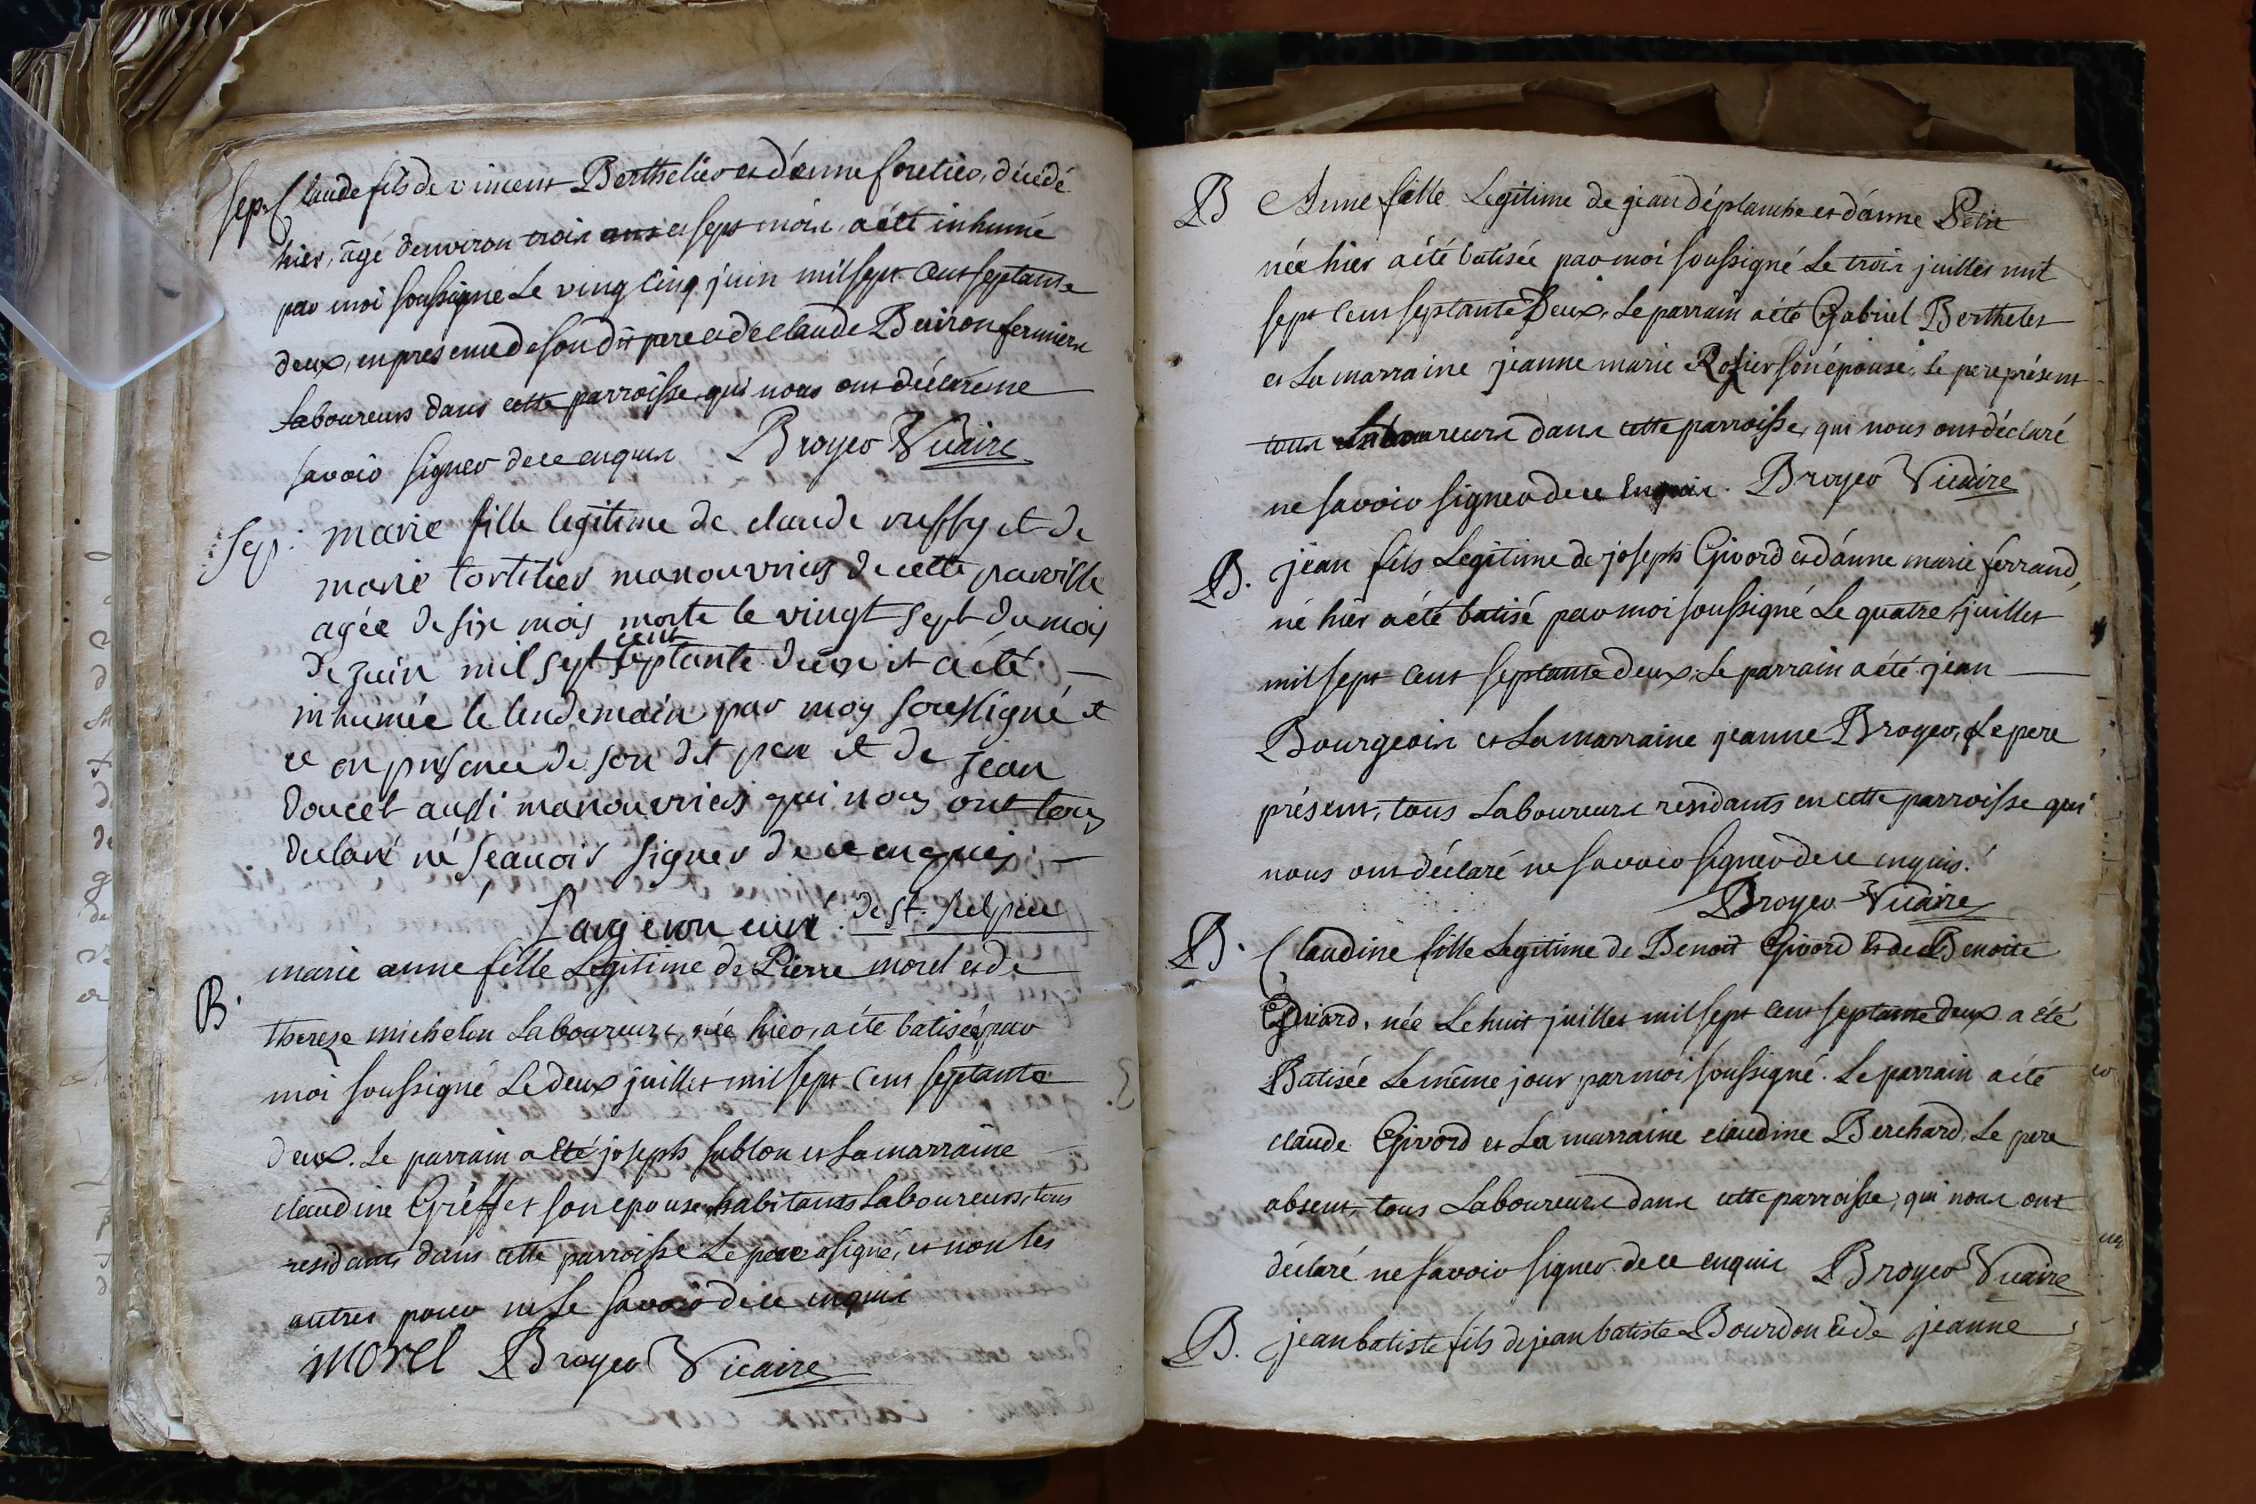 Sep. Claude fils de vincent Berthelier et d'anne foretier, décédé
hier, âgé d'environ trois ans et sept mois a été inhumé
par moi soussigné Le vingt cinq juin mil sept cent septante
deux, en présence de son dit pere et de claude Buiron fermiers
laboureurs dans cette parroisse, qui nous ont déclaré ne
savoir signer de ce enquis Broyer Vicaire
Sep. marie fille legitime de claude ruffy et de
marie tortilier manouvriers de cette parroisse
agée de six mois morte le vingt sept du mois
de juin mil sept cent septante deux et a été
inhumée le lendemain par moy soussigné et
ce en presence de son dit pere et de jean
doucet aussi manouvriers qui nous ont tous
declaré né sçauoir signer de ce enquis
curé de St. Sulpice
B. marie anne fille Legitime de Pierre morel et de
therese michelon Laboureurs, née hier, a été batisée par
moi soussigné Le deux juillet mil sept cent septante
deux. Le parrain a Eté joseph sublon et La marraine
claudine Greffet son epouse, habitants Laboureurs, tous
residants dans cette parroisse Le pere a signé, et non les
autres pour ne Le savoir de ce enquis
morel Broyer Vicaire
B Anne fille Legitime de jean déplanche et d'anne Petit
née hier a été batisée par moi soussigné Le trois juillet mil
sept cent septante Deux, Le parrain a été Gabriel Berthelet
et La marraine jeanne marie Rosier son épouse, le pere présent
tous Laboureurs dans cette parroisse, qui nous ont déclaré
ne savoir signer de ce Enquis. Broyer Vicaire
B. jean fils Legitime de joseph Givord et d'anne marie ferrand,
né hier a été batisé par moi soussigné Le quatre juillet
mil sept cent septante deux, Le parrain a été jean
Bourgeois et La marraine jeanne Broyer, Le pere
présent, tous Laboureurs residants en cette parroisse qui
nous ont déclaré ne savoir signer de ce enquis.
Broyer Vicaire
B. Claudine fille Legitime de Benoit Givord Et de Benoite
née Le huit juillet mil sept cent septante deux a été
Batisée Le même jour par moi soussigné. Le parrain a été
claude Givord et La marraine claudine Berchard, Le pere
absent, tous Laboureurs dans cette parroisse, qui nous ont
déclaré ne savoir signer de ce enquis Broyer Vicaire
B. jean batiste fils de jean batiste Bourdon Et de jeanne